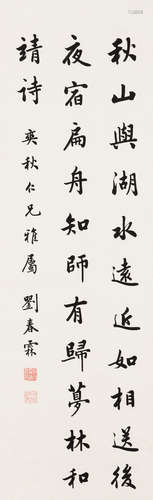 秋山與湖水遠近如相送後
夜宿扁舟知師有歸夢林和
靖詩 奭秋仁兄雅屬 劉春霖